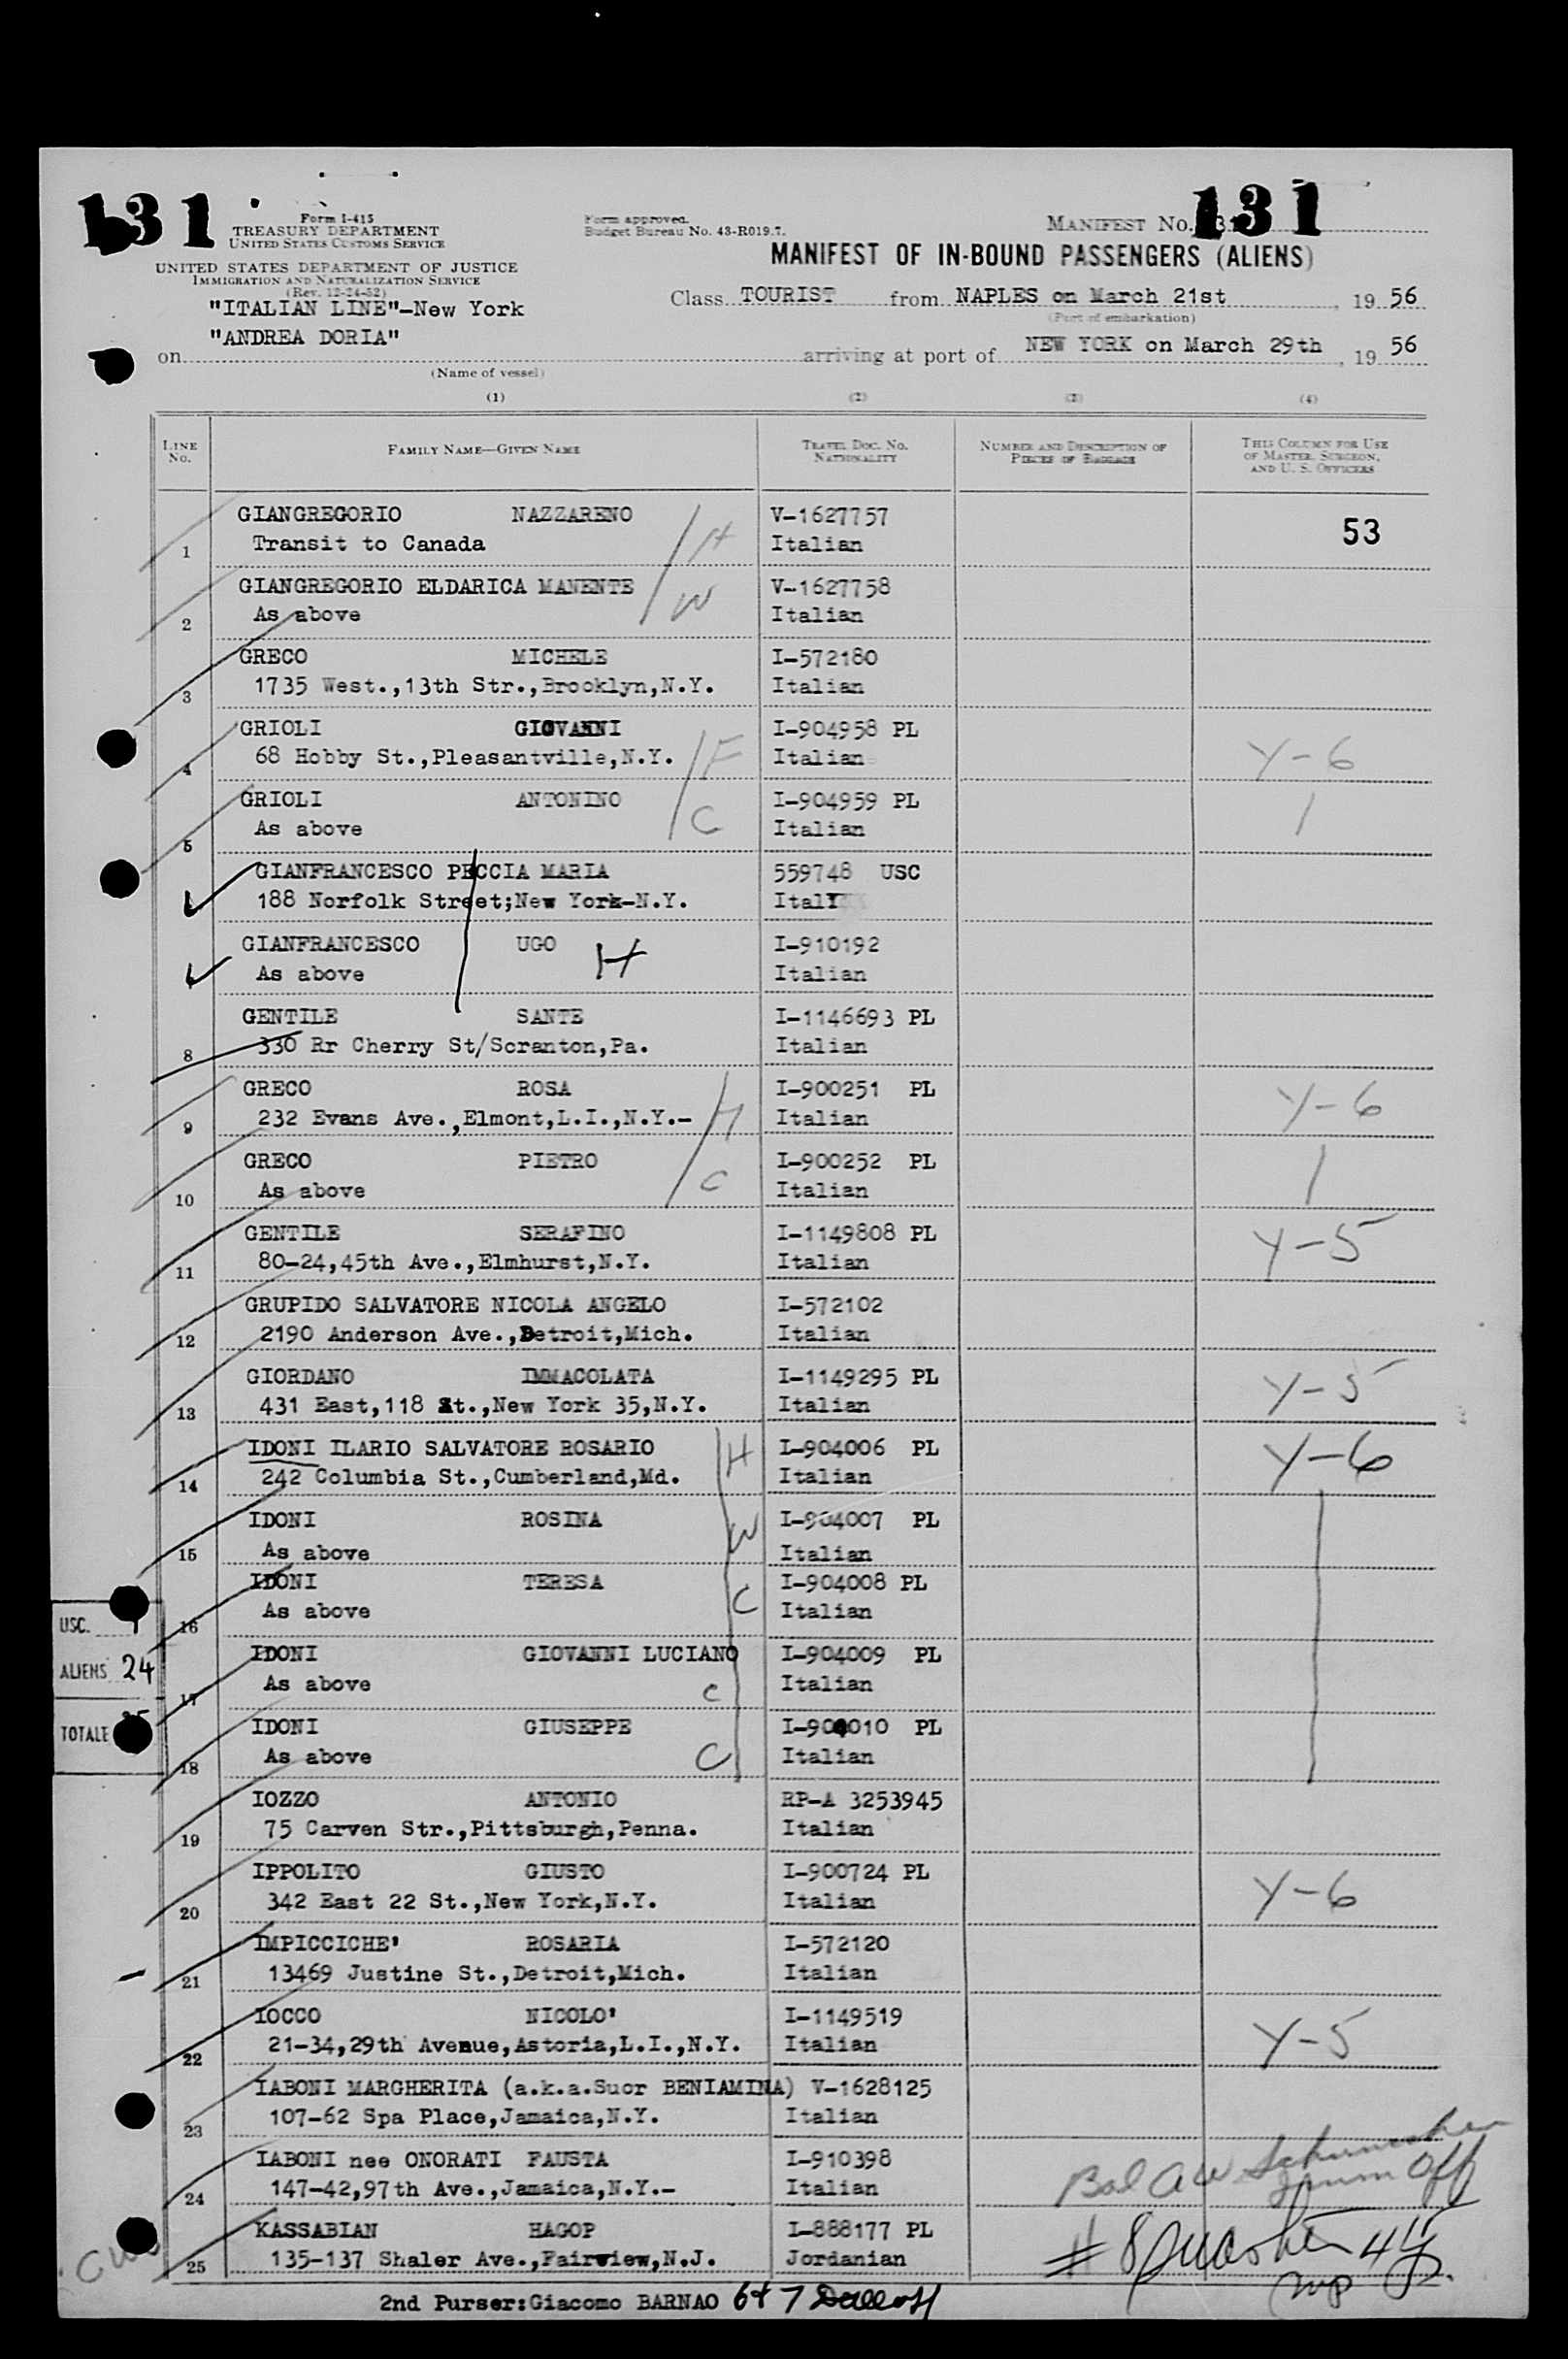 131
131
Form I-415
TREASURY DEPARTMENT
UNITED STATES CUSTOMS SERVICE
UNITED STATES DEPARTMENT OF JUSTICE
IMMIGRATION AND NATURALIZATION SERVICE
(Rev. 12-24-52)
Form approved.
Budget Bureau No. 43-R019.7.
MANIFEST No.
MANIFEST OF IN-BOUND PASSENGERS (ALIENS)
"ITALIAN LINE"-New York
Class TOURIST from NAPLES on March 21st, 19 56
(Port of embarkation)
on "ANDREA DORIA" arriving at port of NEW YORK on March 29th, 19 56
(Name of vessel)
(1) (2) (3) (4)
LINE No. FAMILY NAME—GIVEN NAME TRAVEL DOC. No. NATIONALITY NUMBER AND DESCRIPTION OF PIECES OF BAGGAGE THIS COLUMN FOR USE OF MASTER, SURGEON, AND U. S. OFFICERS
GIANGREGORIO NAZZARENO H V-1627757 53
1 Transit to Canada Italian
GIANGREGORIO ELDARICA MANENTE W V-1627758
2 As above Italian
GRECO MICHELE I-572180
3 1735 West.,13th Str.,Brooklyn,N.Y. Italian
GRIOLI GIOVANNI I-904958 PL
4 68 Hobby St.,Pleasantville,N.Y. F Italian Y-6
GRIOLI ANTONINO I-904959 PL
5 As above C Italian
GIANFRANCESCO PECCIA MARIA 559748 USC
188 Norfolk Street;New York-N.Y.
GIANFRANCESCO UGO H I-910192
As above Italian
GENTILE SANTE I-1146693 PL
8 330 Rr Cherry St/Scranton,Pa. Italian
GRECO ROSA I-900251 PL Y-6
9 232 Evans Ave.,Elmont,L.I.,N.Y.- Italian
GRECO PIETRO I-900252 PL
10 As above C Italian
GENTILE SERAFINO I-1149808 PL Y-5
11 80-24,45th Ave.,Elmhurst,N.Y. Italian
GRUPIDO SALVATORE NICOLA ANGELO I-572102
12 2190 Anderson Ave.,Detroit,Mich. Italian
GIORDANO IMMACOLATA I-1149295 PL Y-5
13 431 East,118 St.,New York 35,N.Y. Italian
IDONI ILARIO SALVATORE ROSARIO H I-904006 PL Y-6
14 242 Columbia St.,Cumberland,Md. Italian
IDONI ROSINA W I-904007 PL
15 As above Italian
IDONI TERESA C I-904008 PL
16 As above Italian
IDONI GIOVANNI LUCIANO I-904009 PL
17 As above C Italian
IDONI GIUSEPPE I-904010 PL
18 As above C Italian
IOZZO ANTONIO RP-A 3253945
19 75 Carven Str.,Pittsburgh,Penna. Italian
IPPOLITO GIUSTO I-900724 PL Y-6
20 342 East 22 St.,New York,N.Y. Italian
IMPICCICHE' ROSARIA I-572120
21 13469 Justine St.,Detroit,Mich. Italian
IOCCO NICOLO' I-1149519 Y-5
22 21-34,29th Avenue,Astoria,L.I.,N.Y. Italian
IABONI MARGHERITA (a.k.a.Suor BENIAMINA) V-1628125
23 107-62 Spa Place,Jamaica,N.Y. Italian
IABONI nee ONORATI FAUSTA I-910398
24 147-42,97th Ave.,Jamaica,N.Y.- Italian
KASSABIAN HAGOP I-888177 PL
25 135-137 Shaler Ave.,Fairview,N.J. Jordanian
USC. 1
ALIENS 24
TOTALE
2nd Purser:Giacomo BARNAO 6+7